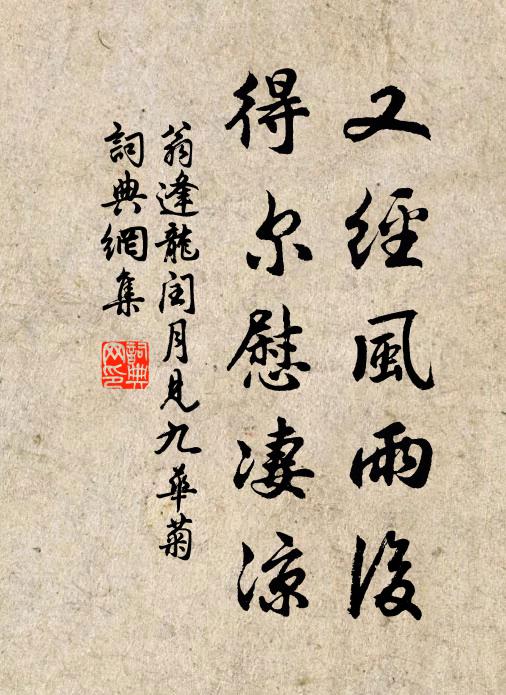 又經風雨後
得尔慰淒涼
翁逢龍閏月見九華菊
詞典網集
詞典網印